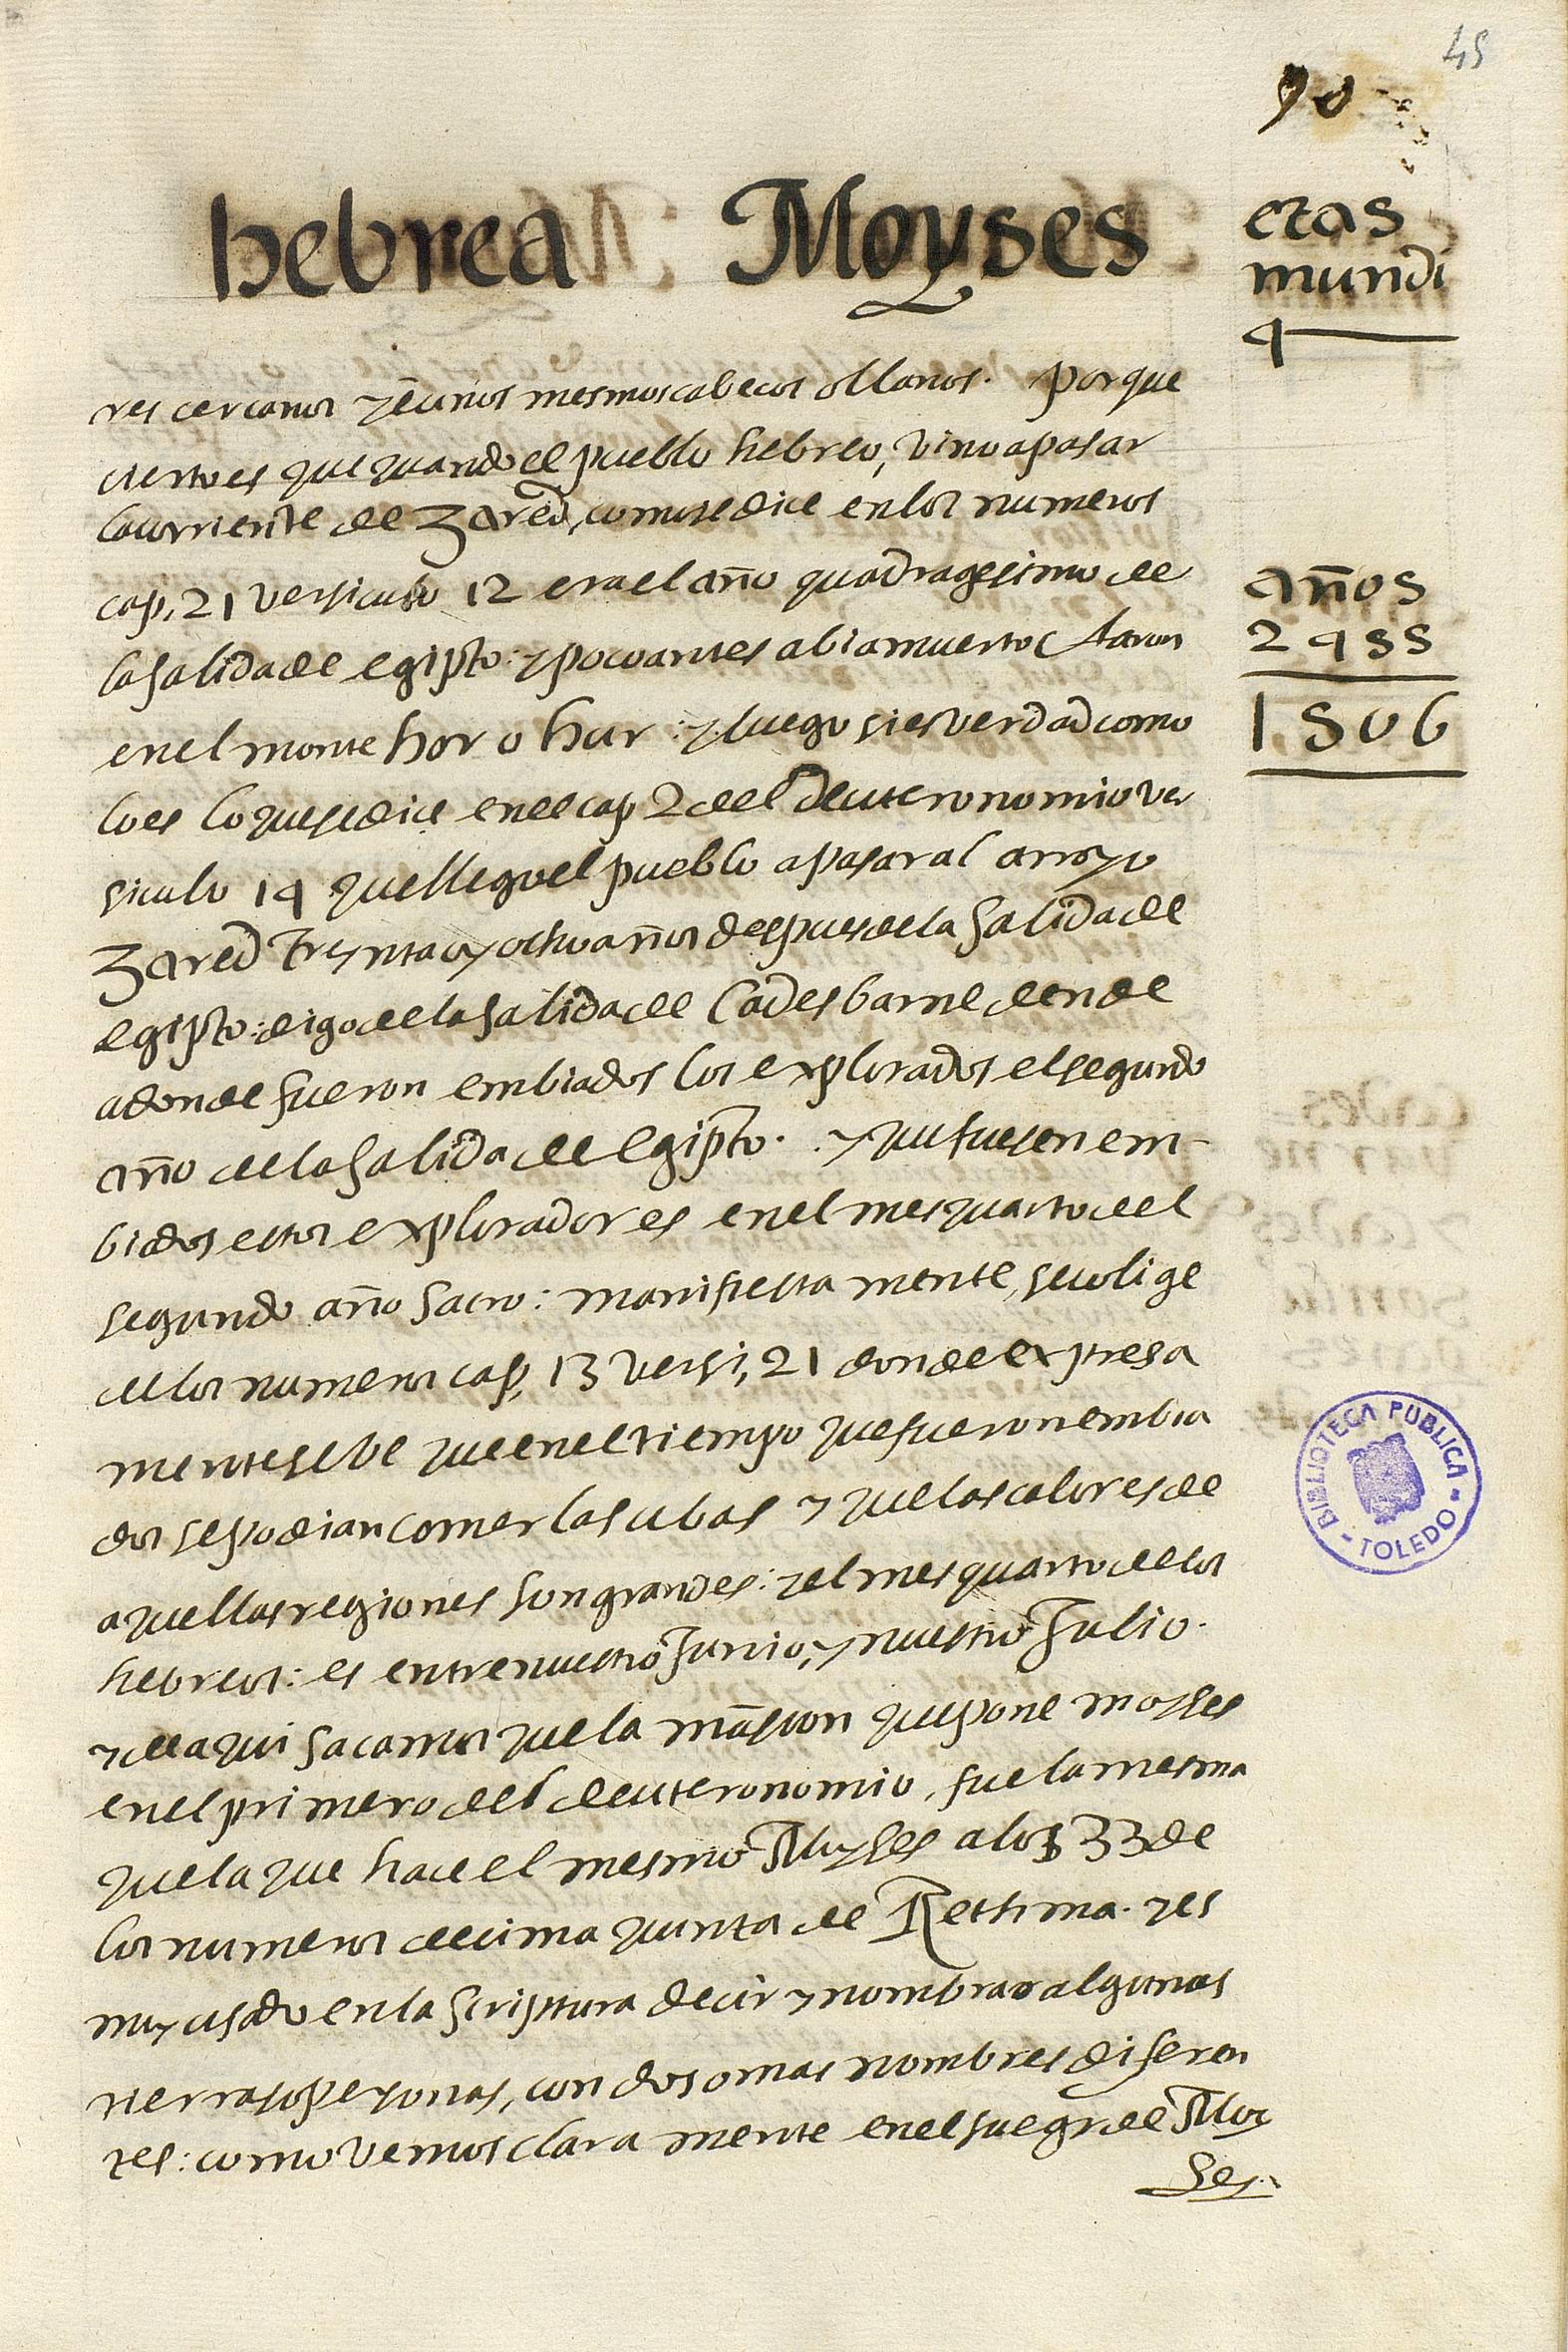 45
90
hebrea Moyses
etas
mundi
4
res cercanos y en unos mesmos cabecos o llanos. porque
cierto es que quando el pueblo hebreo, vino a pasar
la corriente de Zared, como se dice en los numeros
cap, 21 versiculo 12 era el año quadragesimo de
la salida de egipto: y poco antes abia muerto Aaron
en el monte hor o hur: y luego si es verdad como
lo es lo que se dice en el cap 2 del deuteronomio ver
siculo 14 que llego el pueblo a pasar al arroyo
Zared treynta y ocho años despues de la salida de
egipto: digo de la salida de Cadesbarne dende
adonde fueron embiados los explorados el segundo
año de la salida de egipto. y que fuesen em-
biados estos exploradores en el mes quarto del
segundo año sacro: manifiesta mente, se colige
de los numeros cap, 13 versi, 21 donde expresa
mente se ve que en el tiempo que fueron embia
dos se podian comer las ubas y que las calores de
aquellas regiones son grandes: y el mes quarto de los
hebreos: es entre nuestro Junio, y nuestro Julio.
y de aqui sacamos que la mãsion que pone moyses
en el primero del deuteronomio, fue la mesma
que la que hace el mesmo Moyses a los 33 de
los numeros decima quinta de Rethma. y es
muy usado en la scriptura decir y nombrar algunas
tierras o personas, con dos o mas nombres diferen
tes: como vemos clara mente en el suegro de Moy
ses.
años
2455
1506
BIBLIOTECA PUBLICA
- TOLEDO -